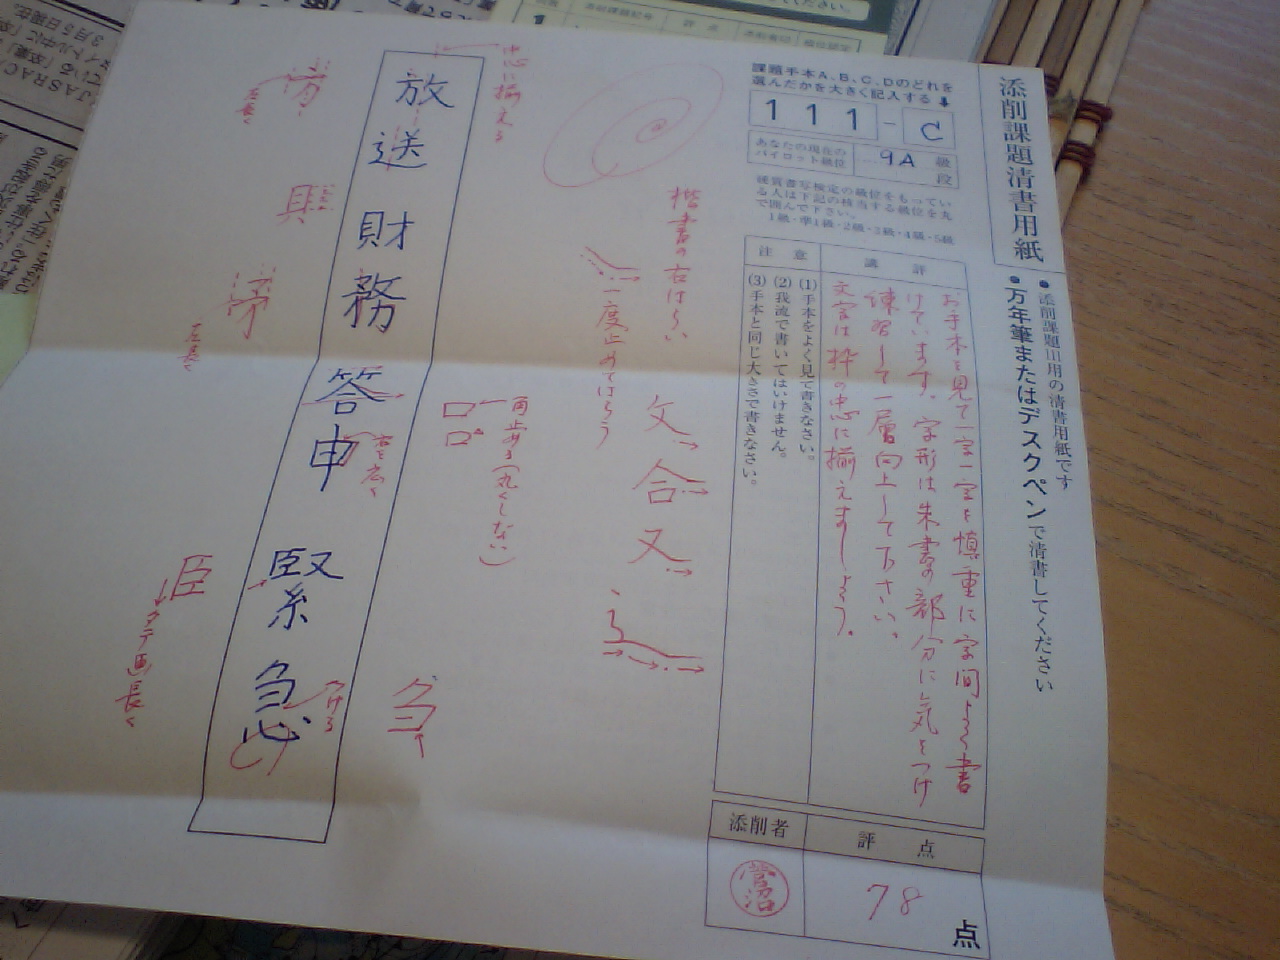 添削課題清書用紙
● 添削課題III用の清書用紙です
● 万年筆またはデスクペンで清書してください
課題手本A、B、C、Dのどれを
選んだかを大きく記入する
111-C
あなたの現在の
パイロット級位
9A
級
段
硬質書写検定の級位をもってい
る人は下記の該当する級位を丸
で囲んで下さい。
1級・準1級・2級・3級・4級・5級
講評
お手本を見て一字一字を慎重に字間よく書
けています。字形は朱書の部分に気をつけ
練習して一層向上して下さい。
文字は枠の中心に揃えましょう。
注意
(1)手本をよく見て書きなさい。
(2)我流で書いてはいけません。
(3)手本と同じ大きさで書きなさい。
添削者
評点
78
点
楷書の右はらい
文
合
又
一度止めてはらう
中心に揃える
角止める(丸くしない)
放送財務答申緊急
右を広く
つける
左長く
左長く
臣
タテ画長く